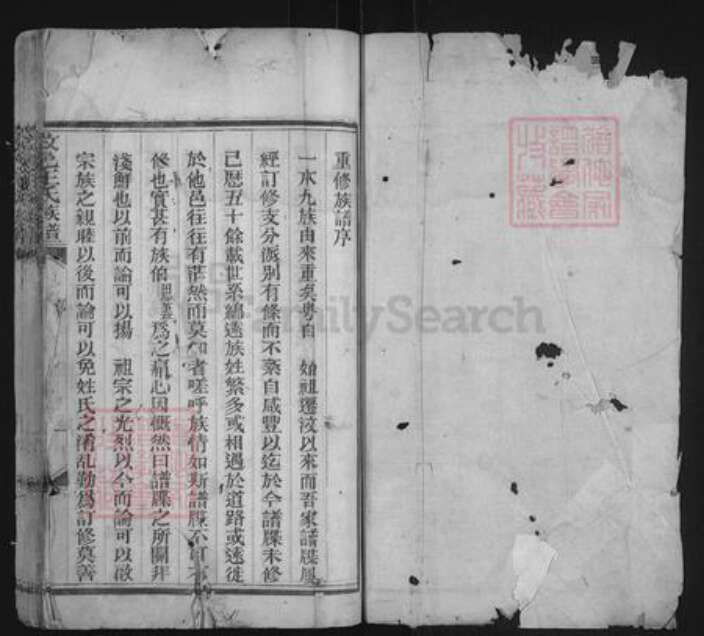 重修族譜序
一本九族由來重矣粤自 始祖遷汶以來而吾家譜牒屢
經訂修支分派別有條而不紊自咸豐以迄於今譜牒未修
已歷五十餘載世系綿遠族姓繁多或相遇於道路或遠徙
於他邑往往有茫然而莫知者嗟呼族情如斯譜牒不可不
修也實甚有族伯 爲之痛心因慨然曰譜牒之所關非
淺鮮也以前而論可以揚 祖宗之光烈以今而論可以敬
宗族之親睦以後而論可以免姓氏之淆乱勤爲訂修莫善
王氏族譜
FamilySearch